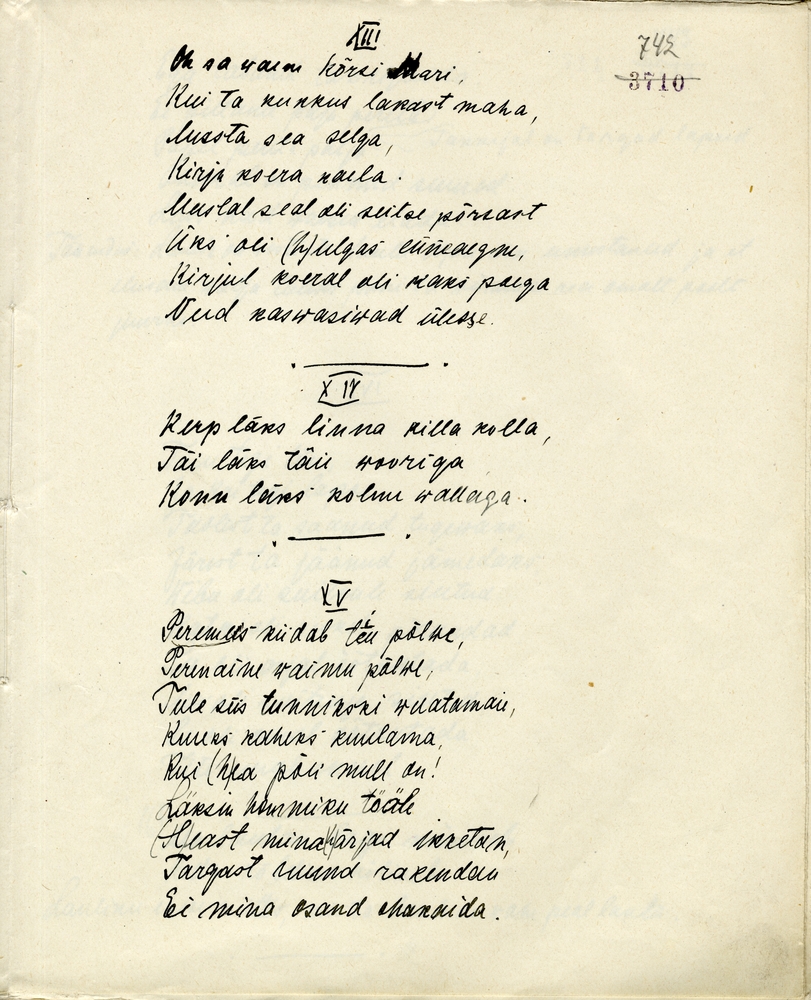 XIII
742
3710
Oh sa waene kõrsi Mari,
Kui ta kukkus lakast maha,
Mussta sea selga,
Kirju koera kaela.
Mustal seal oli seitse põrsast
Üks oli (h)ulgas
Kirjul koeral oli kaks poega
Need kaswasiwad ülesse.
XIV
Kerp läks linna killa kolla,
Täi läks täie wooriga
Konn läks kolme wallaga.
XV
Peremees kiidab teu põlwe,
Perenaine waimu põlwe,
Tule siis tunnikski waatamaie,
Kuuks kaheks kuulama,
Kui (h)ea põli mull on!
Läksin hommiku tööle
(H)east mina (h)ärjad ikketan,
Targast ruund rakendan
Ei mina osand